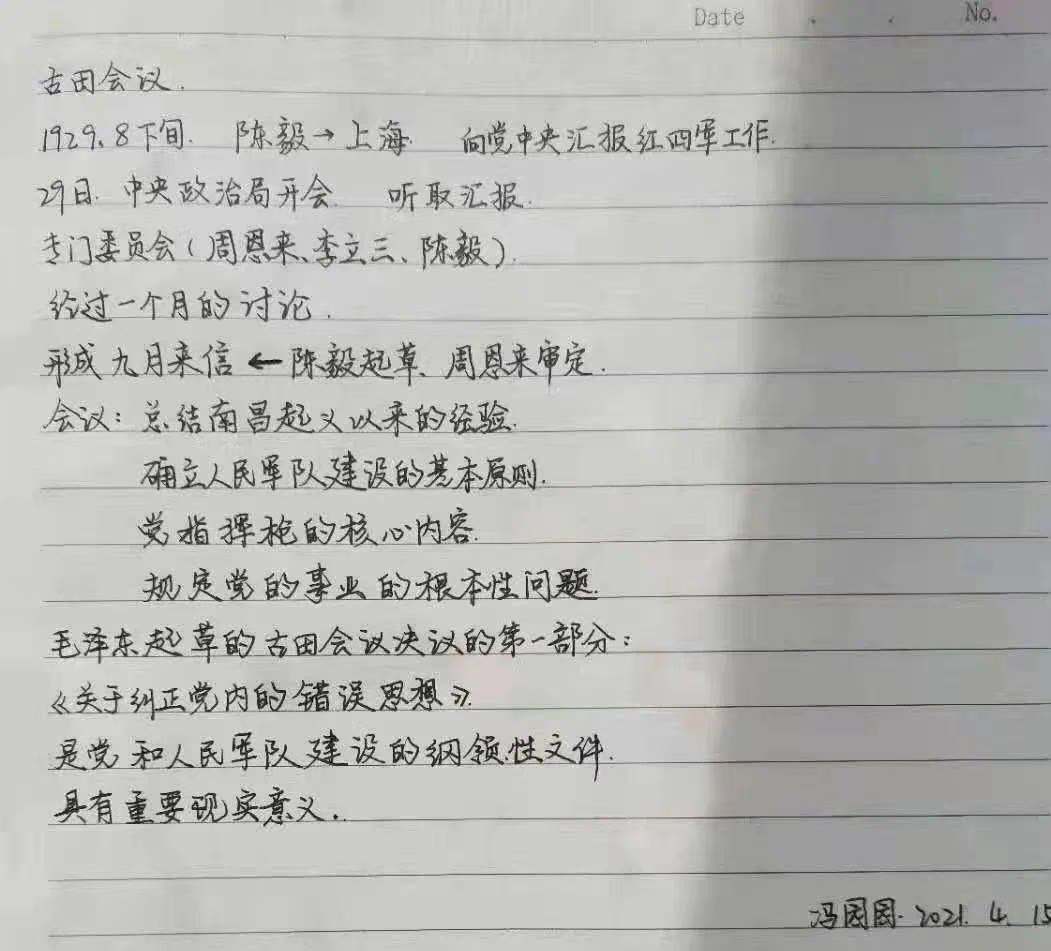 Date . . No.
古田会议.
1929.8下旬. 陈毅→上海. 向党中央汇报红四军工作.
29日. 中央政治局开会. 听取汇报.
专门委员会(周恩来、李立三、陈毅).
经过一个月的讨论.
形成九月来信←陈毅起草、周恩来审定.
会议: 总结南昌起义以来的经验.
确立人民军队建设的基本原则.
党指挥枪的核心内容.
规定党的事业的根本性问题.
毛泽东起草的古田会议决议的第一部分:
《关于纠正党内的错误思想》.
是党和人民军队建设的纲领性文件.
具有重要现实意义.
冯园园. 2021. 4. 15